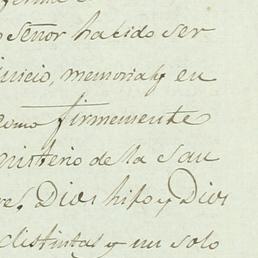 o Señor ha sido ser
juicio, memoria y en
como firmemente
misterio de la san
re, Dios hijo y Dios
distintas y un solo